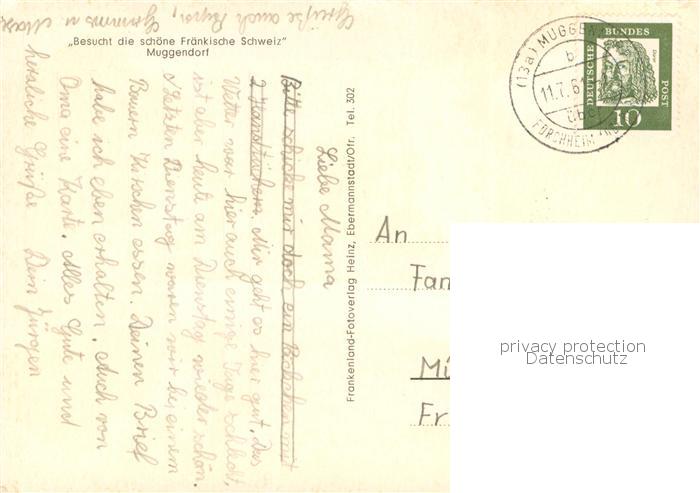 „Besucht die schöne Fränkische Schweiz"
Muggendorf
Liebe Mama
Bitte schicke mir doch ein Päckchen mit
2 Handtüchern. Mir geht es hier gut. Das
Wetter war hier auch einige Tage schlecht,
ist aber heute am Dienstag wieder schön.
Letzten Dienstag waren wir bei einem
Bauern Kirschen essen. Deinen Brief
habe ich eben erhalten. Auch von
Oma eine Karte. Alles Gute und
herzliche Grüße Dein Jürgen
Grüße auch
Frankenland-Fotoverlag Heinz, Ebermannstadt/Ofr. Tel. 302
(13a) MUGGEN
b
11.7.61
FORCHHEIM
DEUTSCHE BUNDESPOST
Dürer
10
An
Fam
Mü
Fr
privacy protection
Datenschutz